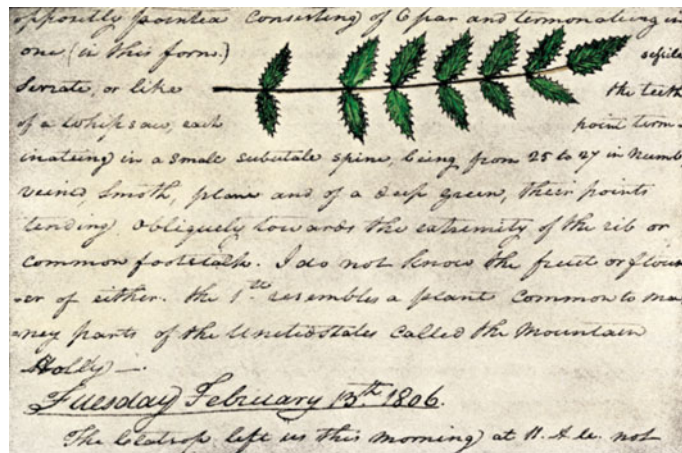 oppositly pointed consisting of 6 par and termonateing in
one (in this form.) sessile
Serrate, or like the teeth
of a whipsaw, each point term-
inateing in a small subulate spine, being from 25 to 27 in numb
veined, smoth, plane and of a deep green, their points
tending obliquely towards the extremity of the rib or
common footstalk. I do not know the fruit or flow
er of either. the 1st resembles a plant common to ma
ney parts of the Unitedstates called the Mountain
Holly —.
Tuesday February 13th 1806.
The Clatsop left us this morning at 11. A. M. not